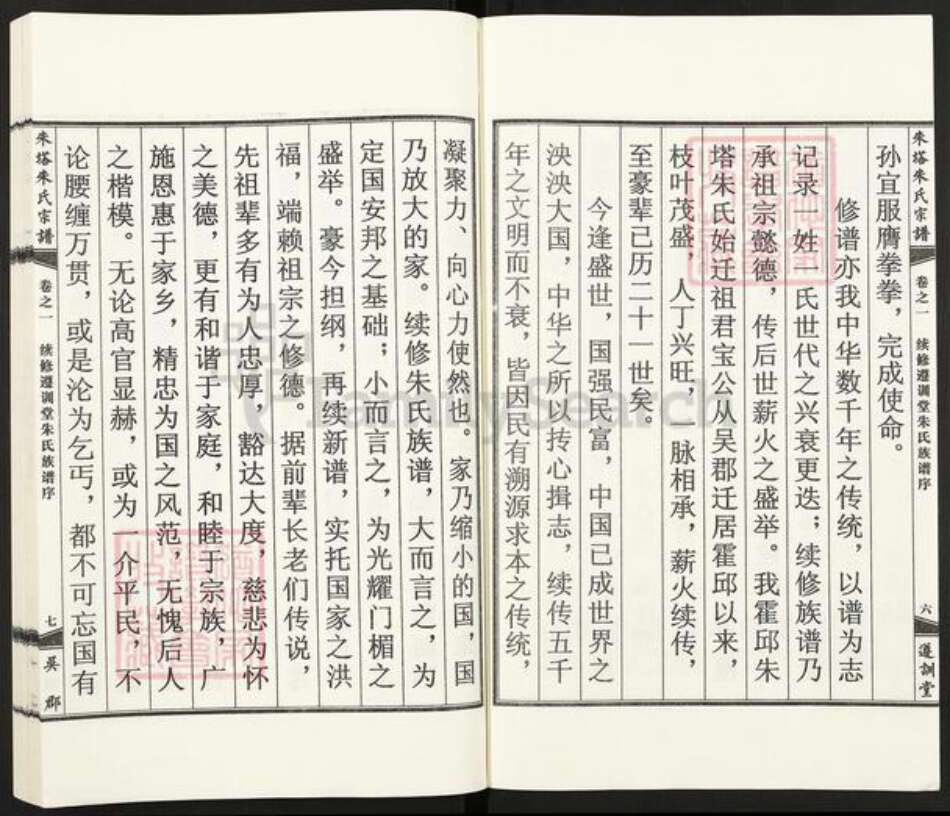 朱塔朱氏宗譜
卷之一
续修遵训堂朱氏族谱序
六
遵訓堂
孙宜服膺拳拳，完成使命。
修谱亦我中华数千年之传统，以谱为志
记录一姓一氏世代之兴衰更迭；续修族谱乃
承祖宗懿德，传后世薪火之盛举。我霍邱朱
塔朱氏始迁祖君宝公从吴郡迁居霍邱以来，
枝叶茂盛，人丁兴旺，一脉相承，薪火续传，
至豪辈已历二十一世矣。
今逢盛世，国强民富，中国已成世界之
泱泱大国，中华之所以抟心揖志，续传五千
年之文明而不衰，皆因民有溯源求本之传统，
凝聚力、向心力使然也。家乃缩小的国，国
乃放大的家。续修朱氏族谱，大而言之，为
定国安邦之基础；小而言之，为光耀门楣之
盛举。豪今担纲，再续新谱，实托国家之洪
福，端赖祖宗之修德。据前辈长老们传说，
先祖辈多有为人忠厚，豁达大度，慈悲为怀
之美德，更有和谐于家庭，和睦于宗族，广
施恩惠于家乡，精忠为国之风范，无愧后人
之楷模。无论高官显赫，或为一介平民，不
论腰缠万贯，或是沦为乞丐，都不可忘国有
朱塔朱氏宗譜
卷之一
续修遵训堂朱氏族谱序
七
吴郡
FamilySearch